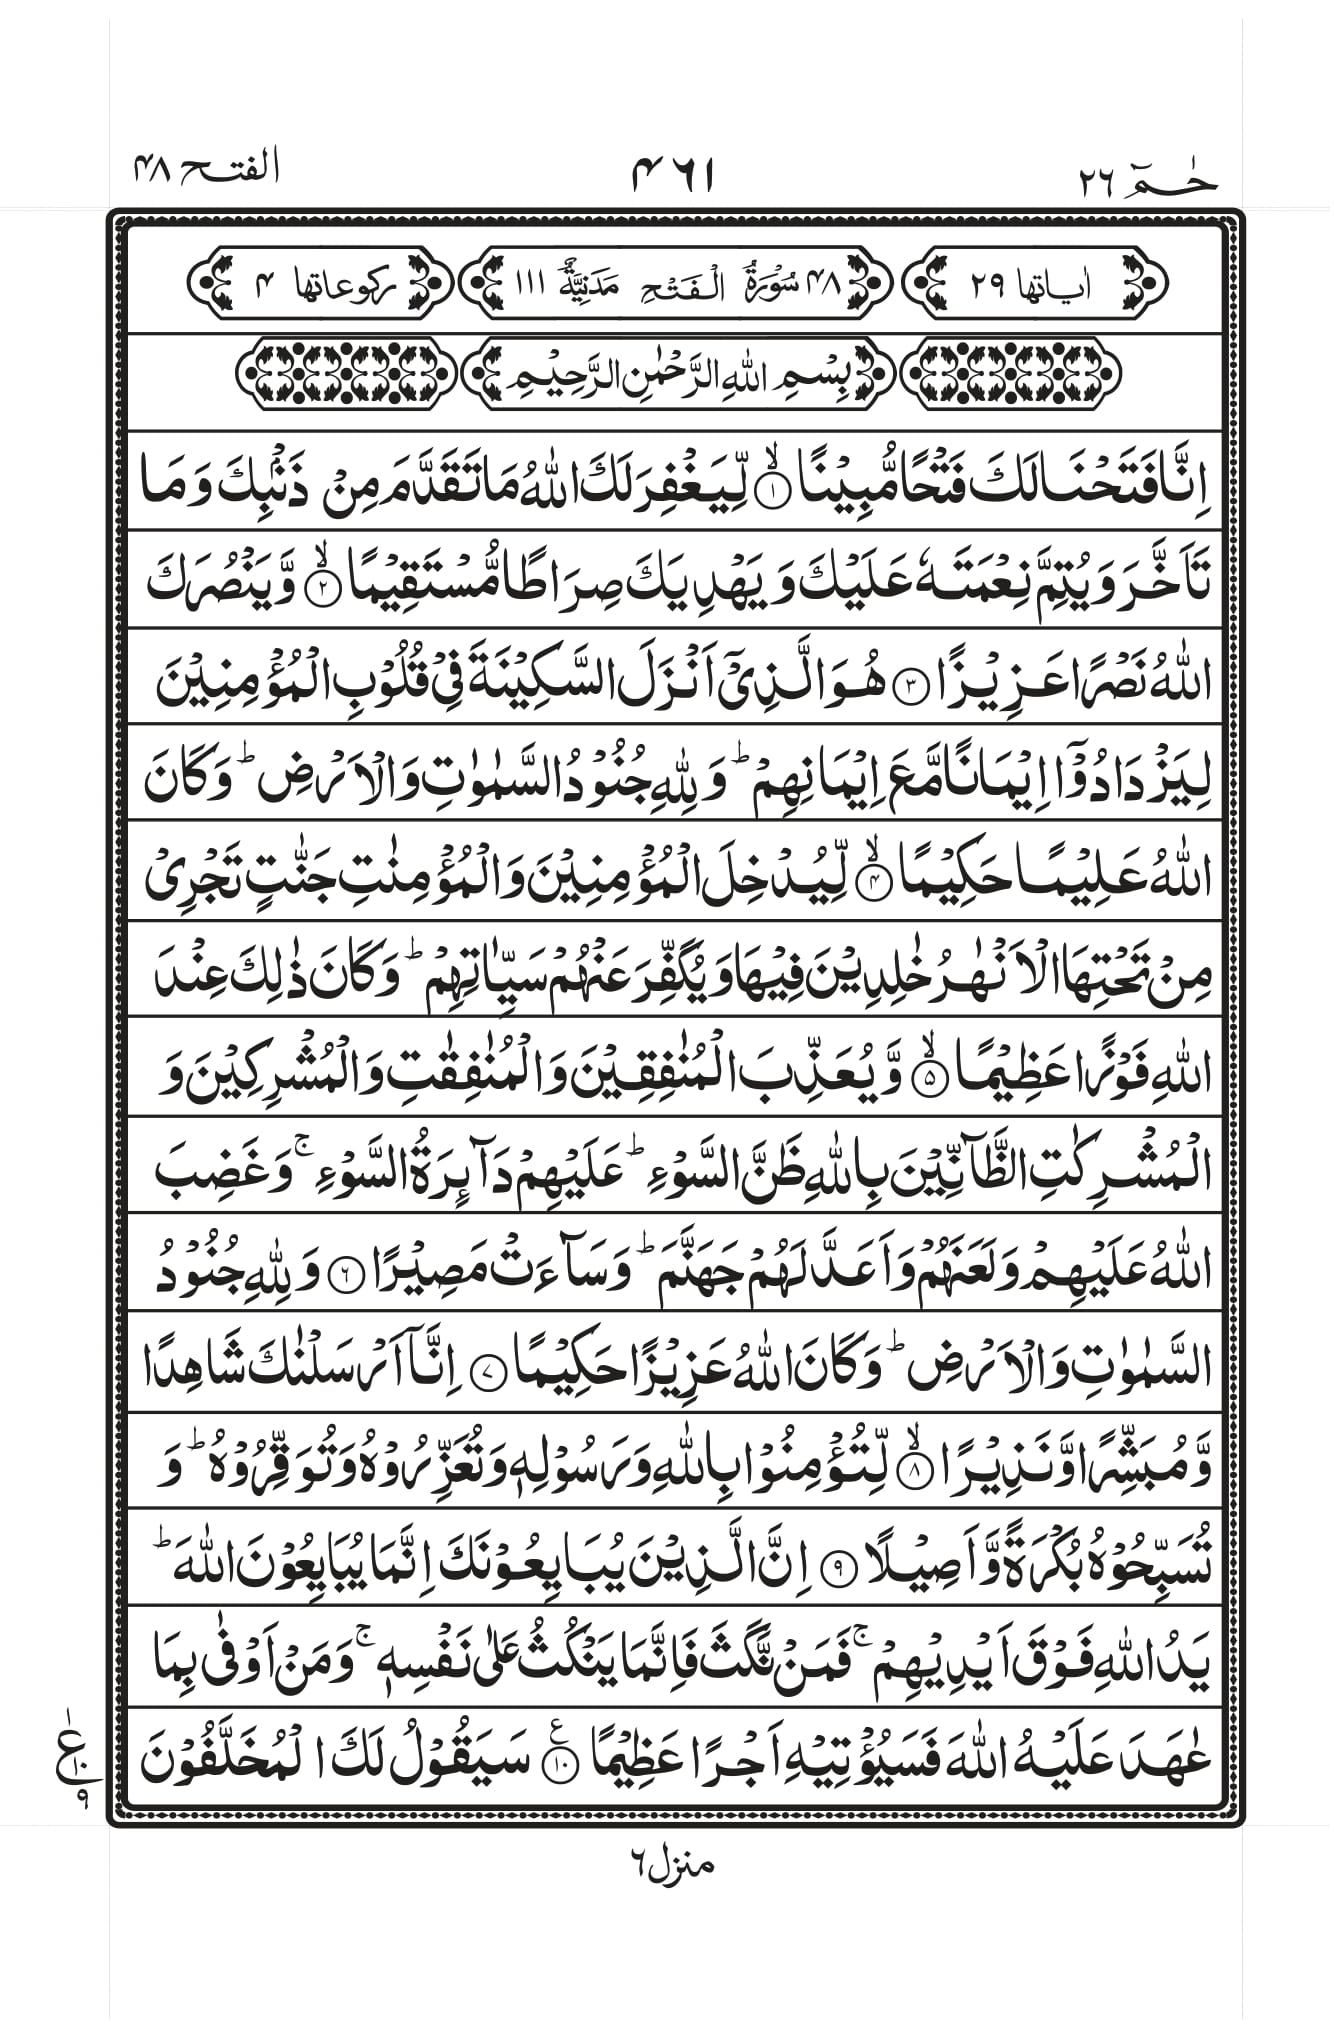 حٰمٓ ٢٦
۴٦١
الفتح ۴٨
اٰیاتها ٢٩
۴٨ سُوْرَةُ الْفَتْحِ مَدَنِیَّةٌ ١١١
رکوعاتها ۴
بِسْمِ اللّٰهِ الرَّحْمٰنِ الرَّحِیْمِ
اِنَّا فَتَحْنَا لَكَ فَتْحًا مُّبِیْنًا ۙ﴿١﴾ لِّیَغْفِرَ لَكَ اللّٰهُ مَا تَقَدَّمَ مِنْ ذَنْۢبِكَ وَ مَا
تَاَخَّرَ وَ یُتِمَّ نِعْمَتَهٗ عَلَیْكَ وَ یَهْدِیَكَ صِرَاطًا مُّسْتَقِیْمًا ۙ﴿٢﴾ وَّ یَنْصُرَكَ
اللّٰهُ نَصْرًا عَزِیْزًا ﴿٣﴾ هُوَ الَّذِیْۤ اَنْزَلَ السَّكِیْنَةَ فِیْ قُلُوْبِ الْمُؤْمِنِیْنَ
لِیَزْدَادُوْۤا اِیْمَانًا مَّعَ اِیْمَانِهِمْ ؕ وَ لِلّٰهِ جُنُوْدُ السَّمٰوٰتِ وَ الْاَرْضِ ؕ وَ كَانَ
اللّٰهُ عَلِیْمًا حَكِیْمًا ۙ﴿۴﴾ لِّیُدْخِلَ الْمُؤْمِنِیْنَ وَ الْمُؤْمِنٰتِ جَنّٰتٍ تَجْرِیْ
مِنْ تَحْتِهَا الْاَنْهٰرُ خٰلِدِیْنَ فِیْهَا وَ یُكَفِّرَ عَنْهُمْ سَیِّاٰتِهِمْ ؕ وَ كَانَ ذٰلِكَ عِنْدَ
اللّٰهِ فَوْزًا عَظِیْمًا ۙ﴿۵﴾ وَّ یُعَذِّبَ الْمُنٰفِقِیْنَ وَ الْمُنٰفِقٰتِ وَ الْمُشْرِكِیْنَ وَ
الْمُشْرِكٰتِ الظَّآنِّیْنَ بِاللّٰهِ ظَنَّ السَّوْءِ ؕ عَلَیْهِمْ دَآىِٕرَةُ السَّوْءِ ۚ وَ غَضِبَ
اللّٰهُ عَلَیْهِمْ وَ لَعَنَهُمْ وَ اَعَدَّ لَهُمْ جَهَنَّمَ ؕ وَ سَآءَتْ مَصِیْرًا ﴿٦﴾ وَ لِلّٰهِ جُنُوْدُ
السَّمٰوٰتِ وَ الْاَرْضِ ؕ وَ كَانَ اللّٰهُ عَزِیْزًا حَكِیْمًا ﴿٧﴾ اِنَّاۤ اَرْسَلْنٰكَ شَاهِدًا
وَّ مُبَشِّرًا وَّ نَذِیْرًا ۙ﴿٨﴾ لِّتُؤْمِنُوْا بِاللّٰهِ وَ رَسُوْلِهٖ وَ تُعَزِّرُوْهُ وَ تُوَقِّرُوْهُ ؕ وَ
تُسَبِّحُوْهُ بُكْرَةً وَّ اَصِیْلًا ﴿٩﴾ اِنَّ الَّذِیْنَ یُبَایِعُوْنَكَ اِنَّمَا یُبَایِعُوْنَ اللّٰهَ ؕ
یَدُ اللّٰهِ فَوْقَ اَیْدِیْهِمْ ۚ فَمَنْ نَّكَثَ فَاِنَّمَا یَنْكُثُ عَلٰى نَفْسِهٖ ۚ وَ مَنْ اَوْفٰى بِمَا
عٰهَدَ عَلَیْهُ اللّٰهَ فَسَیُؤْتِیْهِ اَجْرًا عَظِیْمًا ﴿١٠﴾ ع سَیَقُوْلُ لَكَ الْمُخَلَّفُوْنَ
١
ع
١٠
٩
منزل ٦